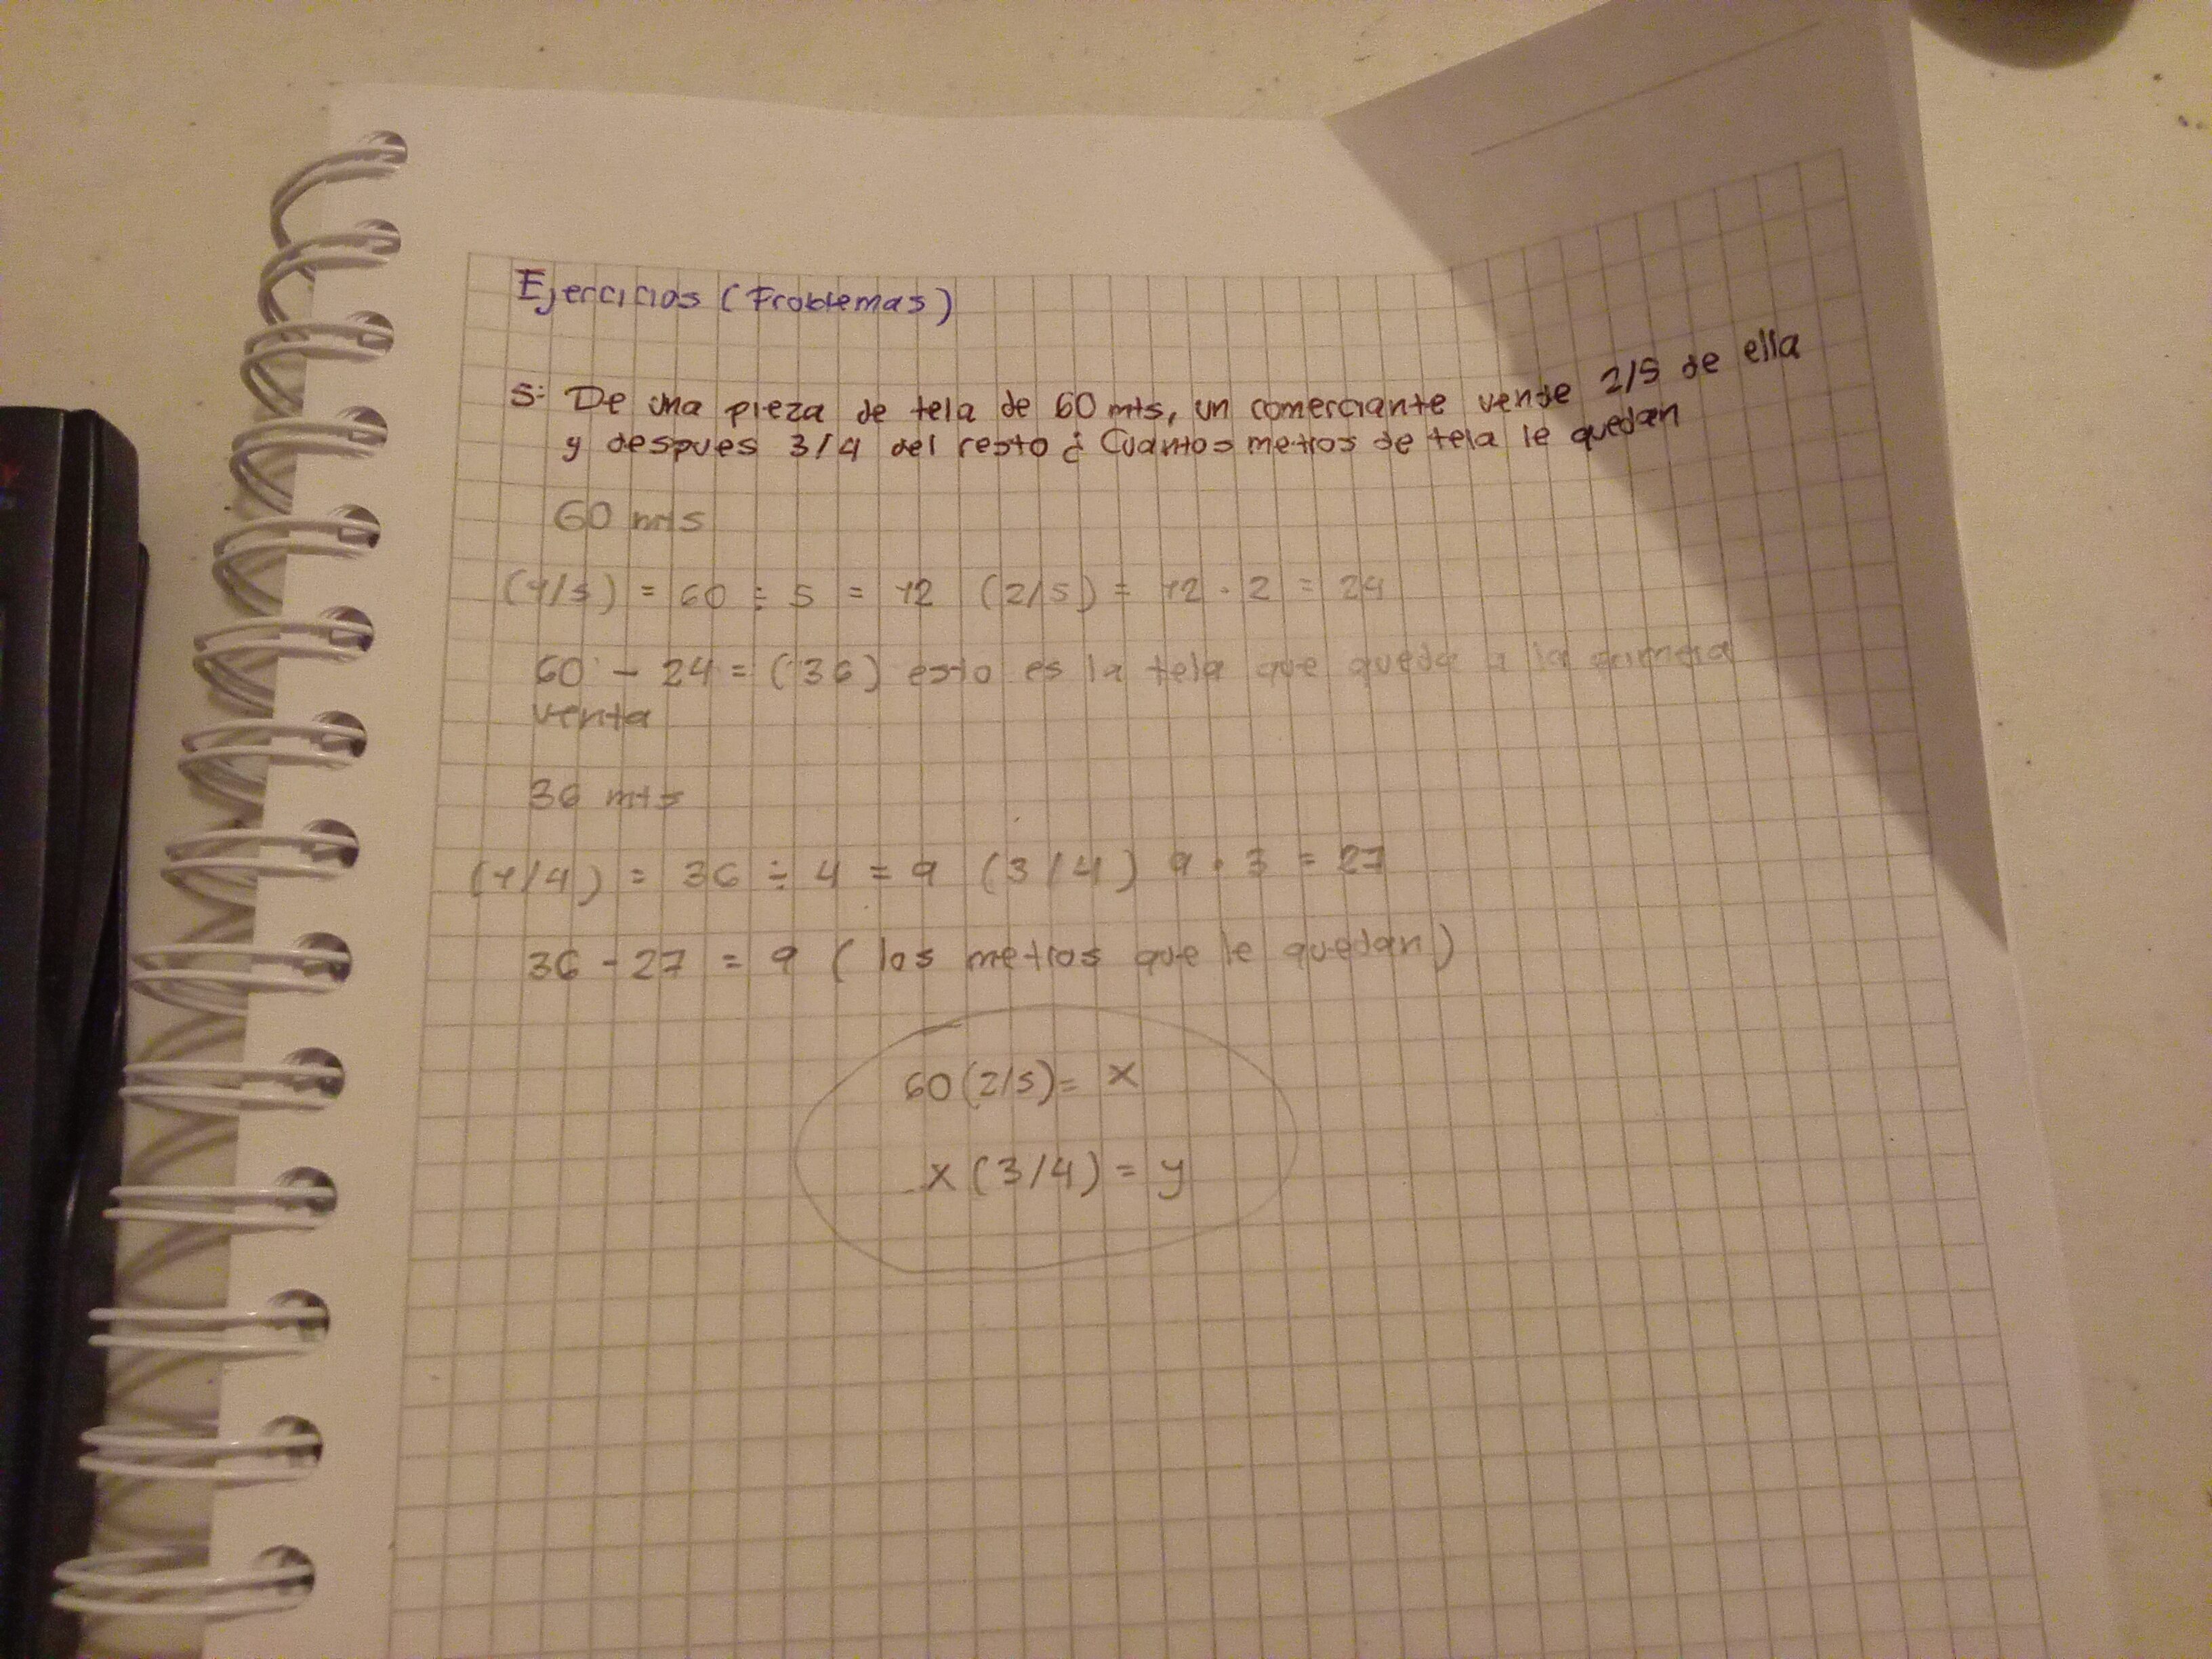 Ejercicios (Problemas)
5- De una pieza de tela de 60 mts, un comerciante vende 2/5 de ella
y despues 3/4 del resto ¿ Cuantos metros de tela le quedan
60 mts
(1/5) = 60 ÷ 5 = 12 (2/5) = 12 · 2 = 24
60 - 24 = (36) esto es la tela que queda a la primera
venta
36 mts
(1/4) = 36 ÷ 4 = 9 (3/4) 9 · 3 = 27
36 - 27 = 9 ( los metros que le quedan)
60(2/5)= x
x (3/4) = y